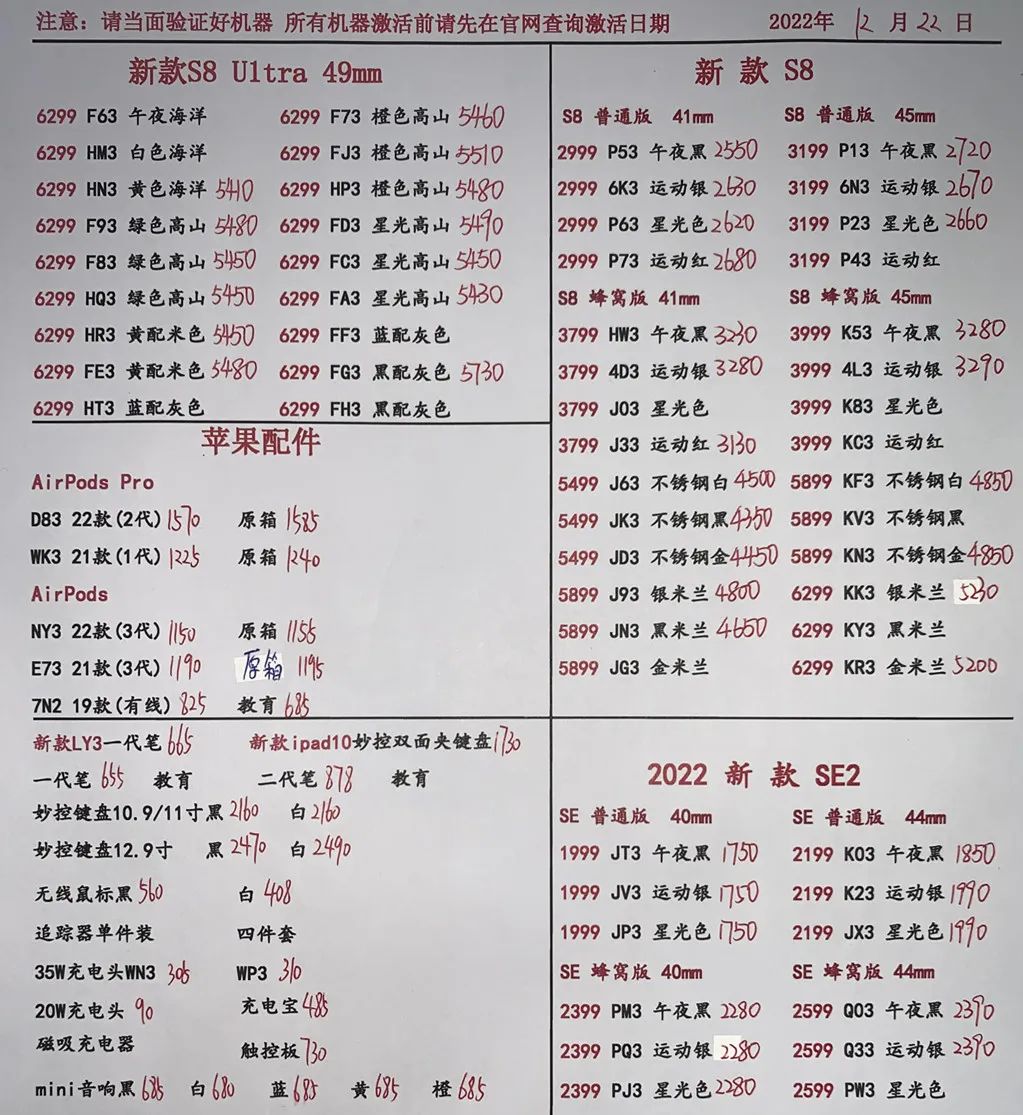 注意：请当面验证好机器 所有机器激活前请先在官网查询激活日期 2022年 12 月 22 日
新款S8 Ultra 49mm
6299 F63 午夜海洋 6299 F73 橙色高山 5460
6299 HM3 白色海洋 6299 FJ3 橙色高山 5510
6299 HN3 黄色海洋 5410 6299 HP3 橙色高山 5480
6299 F93 绿色高山 5480 6299 FD3 星光高山 5490
6299 F83 绿色高山 5450 6299 FC3 星光高山 5450
6299 HQ3 绿色高山 5450 6299 FA3 星光高山 5430
6299 HR3 黄配米色 5450 6299 FF3 蓝配灰色
6299 FE3 黄配米色 5480 6299 FG3 黑配灰色 5730
6299 HT3 蓝配灰色 6299 FH3 黑配灰色
苹果配件
AirPods Pro
D83 22款(2代) 1570 原箱 1585
WK3 21款(1代) 1225 原箱 1240
AirPods
NY3 22款(3代) 1150 原箱 1155
E73 21款(3代) 1190 原箱 1195
7N2 19款(有线) 825 教育 685
新款LY3一代笔 665 新款ipad10妙控双面夹键盘 1730
一代笔 655 教育 二代笔 878 教育
妙控键盘10.9/11寸黑 2160 白 2160
妙控键盘12.9寸 黑 2470 白 2490
无线鼠标黑 560 白 408
追踪器单件装 四件套
35W充电头WN3 305 WP3 310
20W充电头 90 充电宝 485
磁吸充电器 触控板 730
mini音响黑 685 白 680 蓝 685 黄 685 橙 685
新 款 S8
S8 普通版 41mm S8 普通版 45mm
2999 P53 午夜黑 2550 3199 P13 午夜黑 2720
2999 6K3 运动银 2630 3199 6N3 运动银 2670
2999 P63 星光色 2620 3199 P23 星光色 2660
2999 P73 运动红 2680 3199 P43 运动红
S8 蜂窝版 41mm S8 蜂窝版 45mm
3799 HW3 午夜黑 3230 3999 K53 午夜黑 3280
3799 4D3 运动银 3280 3999 4L3 运动银 3290
3799 J03 星光色 3999 K83 星光色
3799 J33 运动红 3130 3999 KC3 运动红
5499 J63 不锈钢白 4500 5899 KF3 不锈钢白 4850
5499 JK3 不锈钢黑 4350 5899 KV3 不锈钢黑
5499 JD3 不锈钢金 4450 5899 KN3 不锈钢金 4850
5899 J93 银米兰 4800 6299 KK3 银米兰 5230
5899 JN3 黑米兰 4650 6299 KY3 黑米兰
5899 JG3 金米兰 6299 KR3 金米兰 5200
2022 新 款 SE2
SE 普通版 40mm SE 普通版 44mm
1999 JT3 午夜黑 1750 2199 K03 午夜黑 1850
1999 JV3 运动银 1750 2199 K23 运动银 1990
1999 JP3 星光色 1750 2199 JX3 星光色 1990
SE 蜂窝版 40mm SE 蜂窝版 44mm
2399 PM3 午夜黑 2280 2599 Q03 午夜黑 2390
2399 PQ3 运动银 2280 2599 Q33 运动银 2390
2399 PJ3 星光色 2280 2599 PW3 星光色